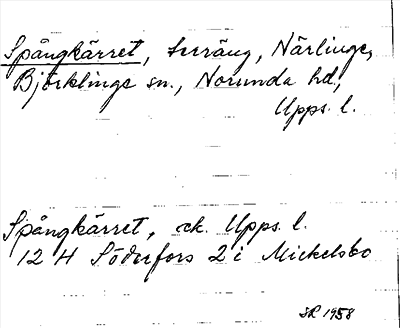 Spångkärret, terräng, Närlinge,
Björklinge sn., Norunda hd.,
Upps. l.
Spångkärret, ek. Upps. l.
12 H Söderfors 2 i Mickelsbo
SR 1958